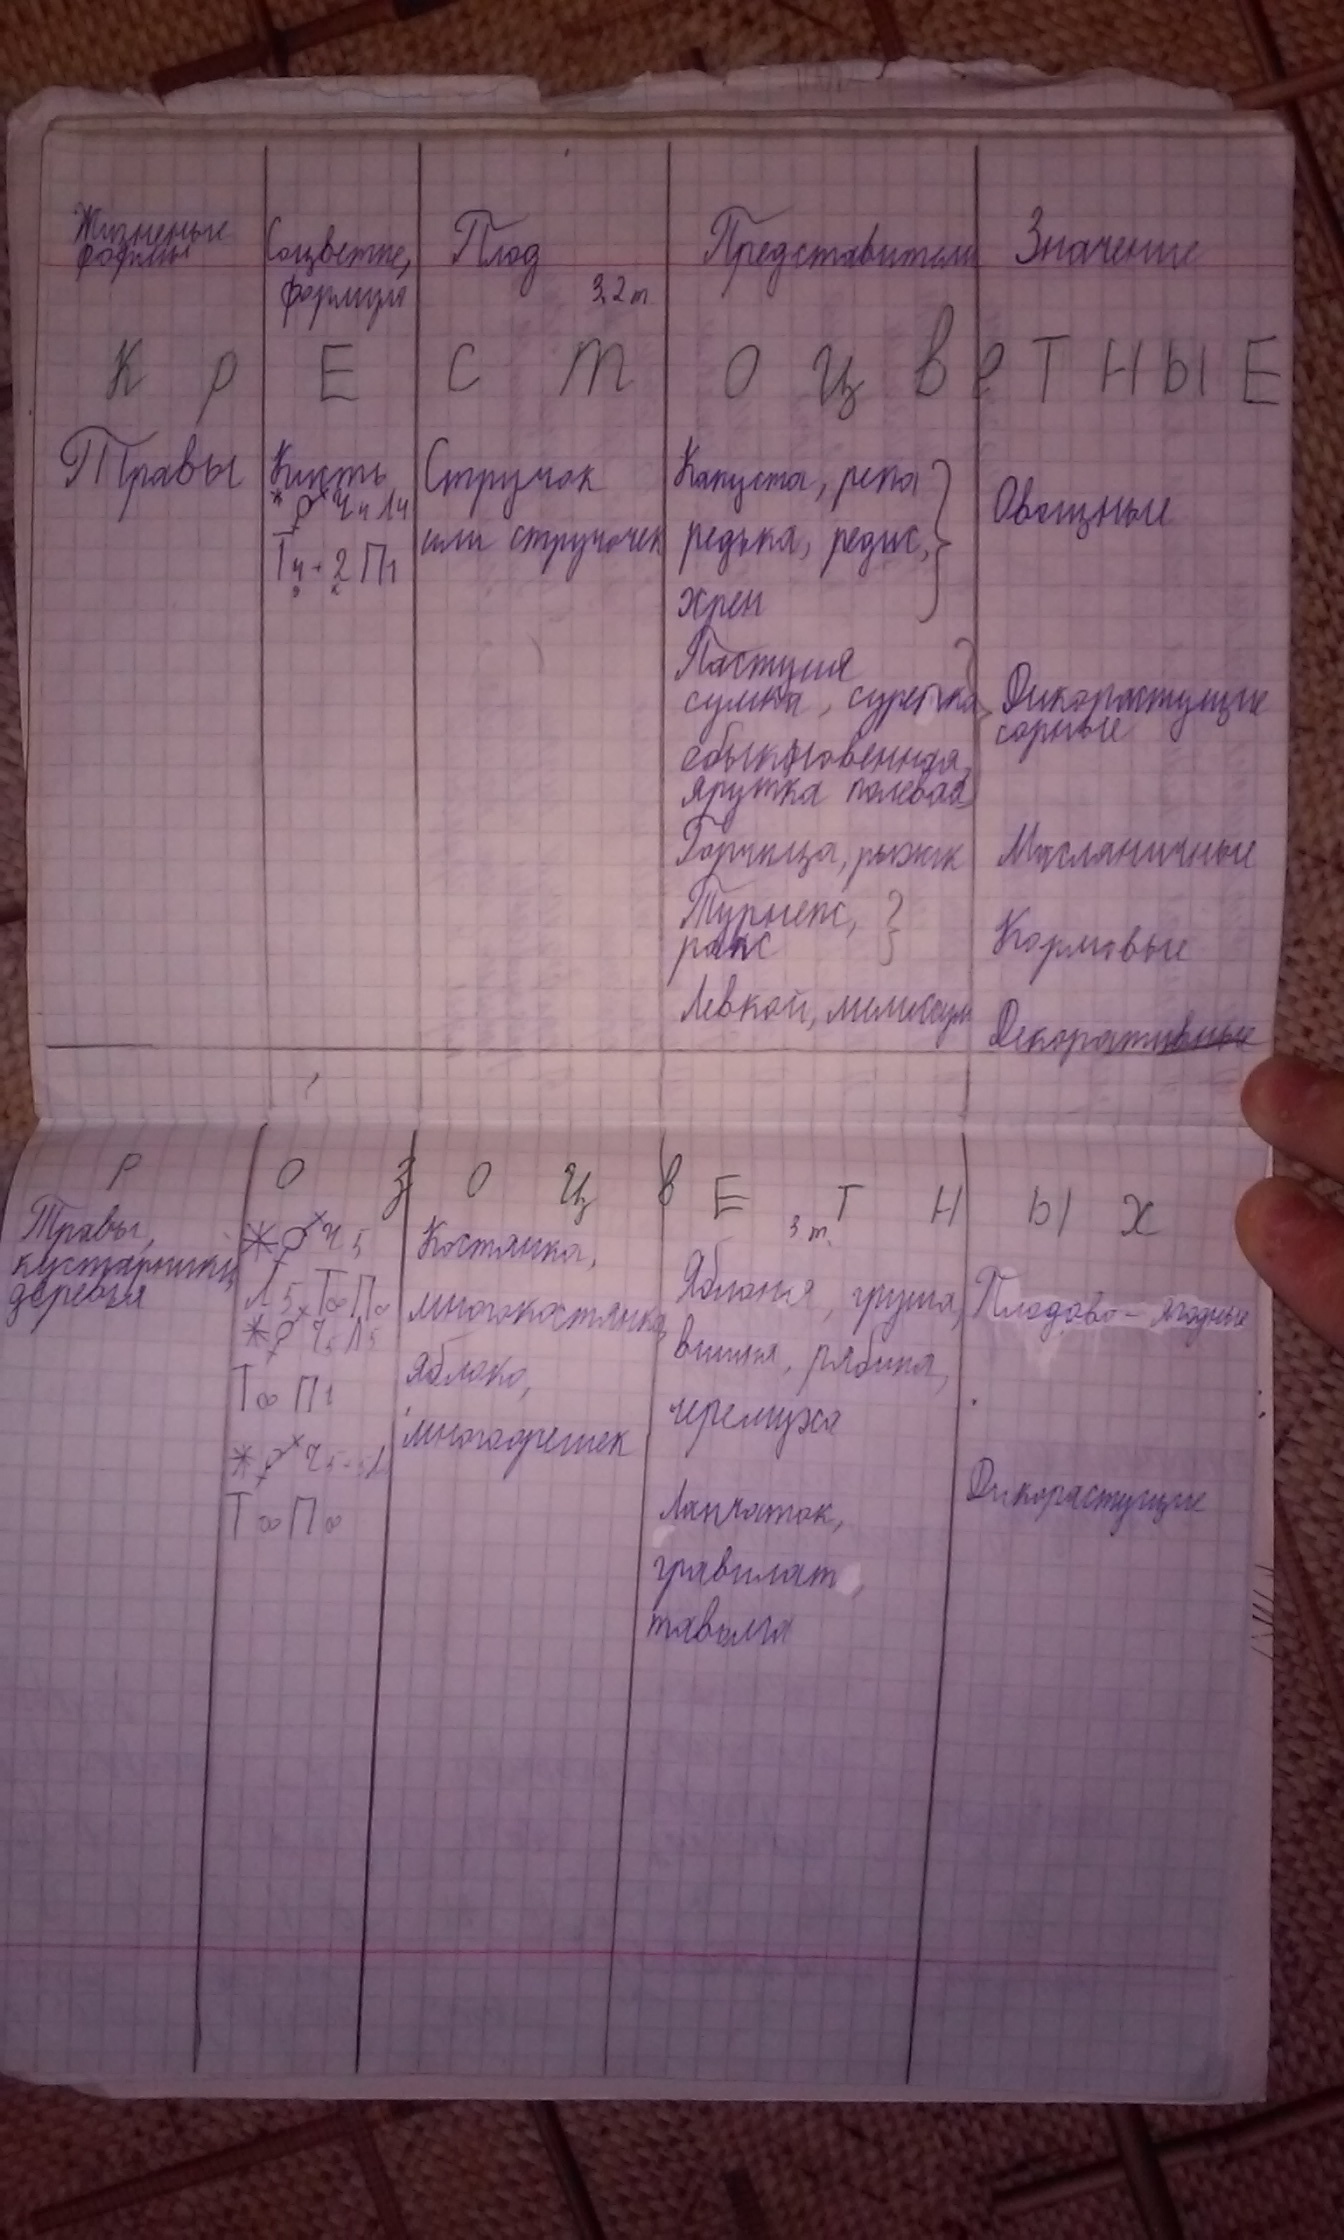 Жизненые
формы
Соцветие,
формула
Плод
3.2 т
Представители
Значение
К Р Е С Т О Ц В Е Т Н Ы Е
Травы
Кисть
*⚥Ч4Л4
Т4+2П1
Стручок
или стручочек
Капуста, репа
редька, редис,
хрен
Овощные
Пастушья
сумка, сурепка
обыкновенная,
ярутка полевая
Дикорастущие
сорные
Горчица, рыжик
Масляничные
Турнепс,
рапс
Кормовые
Левкой,
Декоративные
Р О З О Ц В Е Т Н Ы Х
3 т.
Травы,
кустарники,
деревья
*⚥Ч5
Л5Т∞П∞
*⚥Ч5Л5
Т∞П1
*⚥Ч5
Т∞П∞
Костянка,
многокостянка,
яблоко,
многоорешек
Яблоня, груша,
вишня, рябина,
черемуха
Плодово-ягодные
Лапчаток,
гравилат,
таволга
Дикорастущие